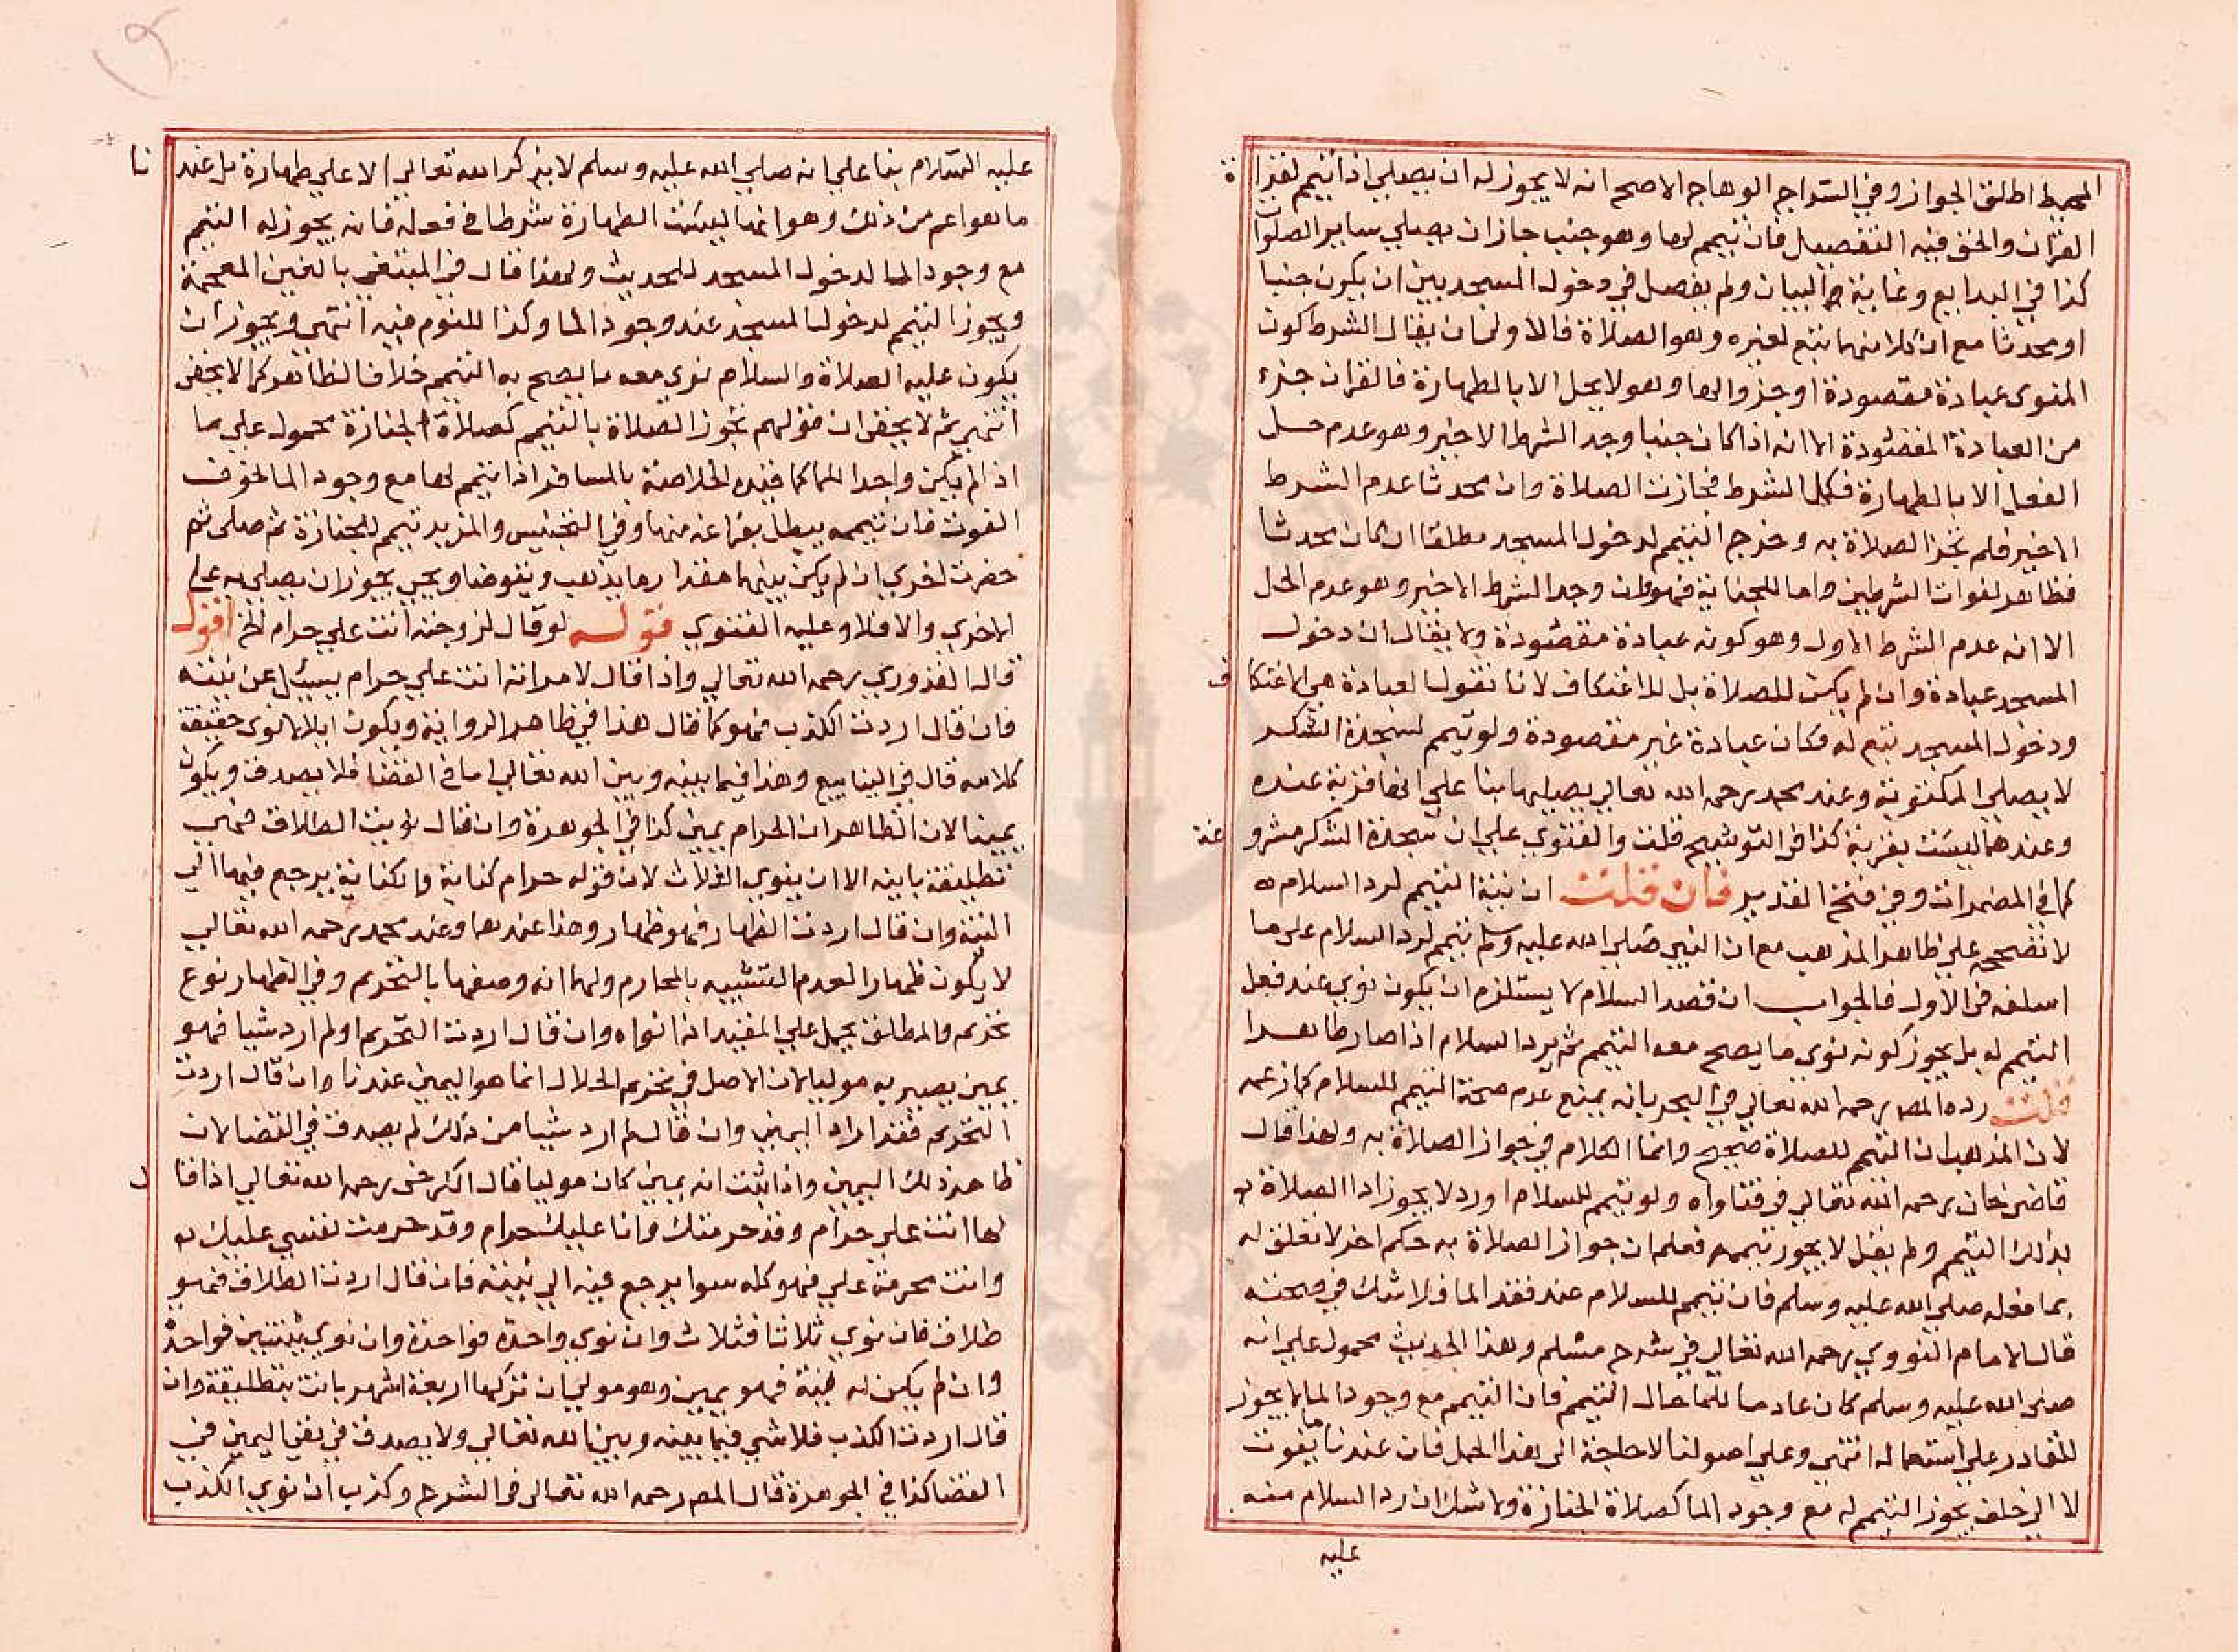 المحيط اطلق الجواز وفي السراج الوهاج الاصح انه لا يجوز له ان يصلي اذا تيمم لقراءة
القران والحق فيه التفصيل فان تيمم لها وهو جنب جاز ان يصلي ساير الصلوات
كذا في البدايع وغاية البيان ولم يفصل في دخول المسجد بين ان يكون جنبا
او محدثا مع ان كلا منهما تبع لغيره وهو الصلاة فالاولى ان يقال الشرط كون
المنوى عبادة مقصودة او جزوالها وهو لا يحل الا بالطهارة فالقران جزء
من العبادة المقصودة الا انه اذا كان جنبا وجد الشرط الاخير وهو عدم حل
الفعل الا بالطهارة فكمل الشرط فجازت الصلاة وان محدثا عدم الشرط
الاخير فلم تجز الصلاة به وخرج التيمم لدخول المسجد مطلقا ان كان محدثا
فظاهر لفوات الشرطين واما للجنابة فهو وان وجد الشرط الاخير وهو عدم الحل
الا انه عدم الشرط الاول وهو كونه عبادة مقصودة ولا يقال ان دخول
المسجد عبادة وان لم يكن للصلاة بل للاعتكاف لانا نقول العبادة هي الاعتكاف
ودخول المسجد تبع له فكان عبادة غير مقصودة ولو تيمم لسجدة الشكر
لا يصلي المكتوبة وعند محمد رحمه الله تعالى يصليها بنا على انها قربة عنده
وعندهما ليست بقربة كذا في التوشيح قلت والفتوي علي ان سجدة الشكر مشروعة
كما في المضمرات وفي فتح القدير فان قلت ان نية التيمم لرد السلام
لا تصححه علي ظاهر المذهب مع ان النبي صلي الله عليه وسلم تيمم لرد السلام على ما
اسلفه في الاول فالجواب ان قصد السلام لا يستلزم ان يكون نوي عند فعل
التيمم له بل يجوز كونه نوى ما يصح معه التيمم ثم يرد السلام اذا صار طاهرا
قلت رده المص رحمه الله تعالي في البحر بانه يمنع عدم صحة التيمم للسلام كما زعمه
لان المذهب ان التيمم للصلاة صحيح وانما الكلام في جواز الصلاة به ولهذا قال
قاضي خان رحمه الله تعالي في فتاواه ولو تيمم للسلام او رد لا يجوز ادا الصلاة به
بذلك التيمم ولم يقل لا يجوز تيممه فعلم ان جواز الصلاة به حكم اخر لا تعلق له
بما فعله صلي الله عليه وسلم فان تيمم للسلام عند فقد الما فلا شك في صحته
قال الامام النووي رحمه الله تعالي في شرح مسلم وهذا الحديث محمول علي انه
صلى الله عليه وسلم كان عادما للما حال التيمم فان التيمم مع وجود الما لا يجوز
للقادر علي استعماله انتهي وعلي اصولنا لا حاجة الى هذا الحمل فان عندنا ما يفوت
لا الي خلف يجوز التيمم له مع وجود الما كصلاة الجنازة ولا شك ان رد السلام منه
عليه
عليه السلام بنا علي انه صلي الله عليه وسلم لا يذكر الله تعالى الا علي طهارة بل عندنا
ما هو اعم من ذلك وهو انما ليست الطهارة شرطا في فعله فانه يجوز له التيمم
مع وجود الما لدخول المسجد للمحدث ولهذا قال في المبتغى بالغين المعجمة
ويجوز التيمم لدخول المسجد عند وجود الما وكذا للنوم فيه انتهى ويجوز ان
يكون عليه الصلاة والسلام نوي معه ما يصح به التيمم خلافا لظاهر كما لا يخفى
انتهى ثم لا يخفى ان قولهم تجوز الصلاة بالتيمم كصلاة الجنازة محمول علي ما
اذا لم يكن واجدا للما كما قيده الخلاصة بالمسافر اذا تيمم لها مع وجود الما لخوف
الفوت فان تيممه يبطل بفراغه منها وفي التجنيس والمزيد تيمم للجنازة ثم صلى ثم
حضرت اخري ان لم يكن بينهما مقدار ما يذهب ويتوضا ويجي يجوز ان يصلي به علي
الاخري والا فلا وعليه الفتوي قوله لو قال لزوجته انت علي حرام الخ اقول
قال القدوري رحمه الله تعالي واذا قال لامراته انت علي حرام يسئل عن نيته
فان قال اردت الكذب فهو كما قال هذا في ظاهر الرواية ويكون ايلا لانه نوى حقيقة
كلامه قال في الينابيع وهذا فيما بينه وبين الله تعالي اما في القضا فلا يصدق ويكون
يمينا لان الظاهر ان الحرام يمين كذا في الجوهرة وان قال نويت الطلاق فهي
تطليقة باينه الا ان ينوي الثلاث لان قوله حرام كناية والكناية يرجع فيها الي
النية وان قال اردت الظهار فهو ظهار وهذا عندهما وعند محمد رحمه الله تعالي
لا يكون ظهارا لعدم التشبيه بالمحارم ولهما انه وصفها بالتحريم وفي الظهار نوع
تحريم والمطلق يحمل علي المقيد اذا نواه وان قال اردت التحريم اولم ارد شيا فهو
يمين يصير به موليا لان الاصل في تحريم الحلال انما هو اليمين عندنا وان قال اردت
التحريم فقد اراد اليمين وان قال لم ارد شيا من ذلك لم يصدق في القضا لان
ظاهر ذلك اليمين واذا ثبت انه يمين كان موليا قال الكرخى رحمه الله تعالي اذا قال
لها انت علي حرام وقد حرمتك وانا عليك حرام وقد حرمت نفسي عليك به
وانت محرمة علي فهو كله سوا يرجع فيه الي نيته فان قال اردت الطلاق فهو
طلاق فان نوي ثلاثا فثلاث وان نوي واحدة فواحدة وان نوي ثنتين فواحدة
وان لم يكن له نية فهو يمين وهو مولي ان تركها اربعة اشهر بانت بتطليقة وان
قال اردت الكذب فلا شي فيما بينه وبين الله تعالي ولا يصدق في نفي اليمين في
القضا كذا في الجوهرة قال المص رحمه الله تعالى في الشرح وكذب ان نوي الكذب